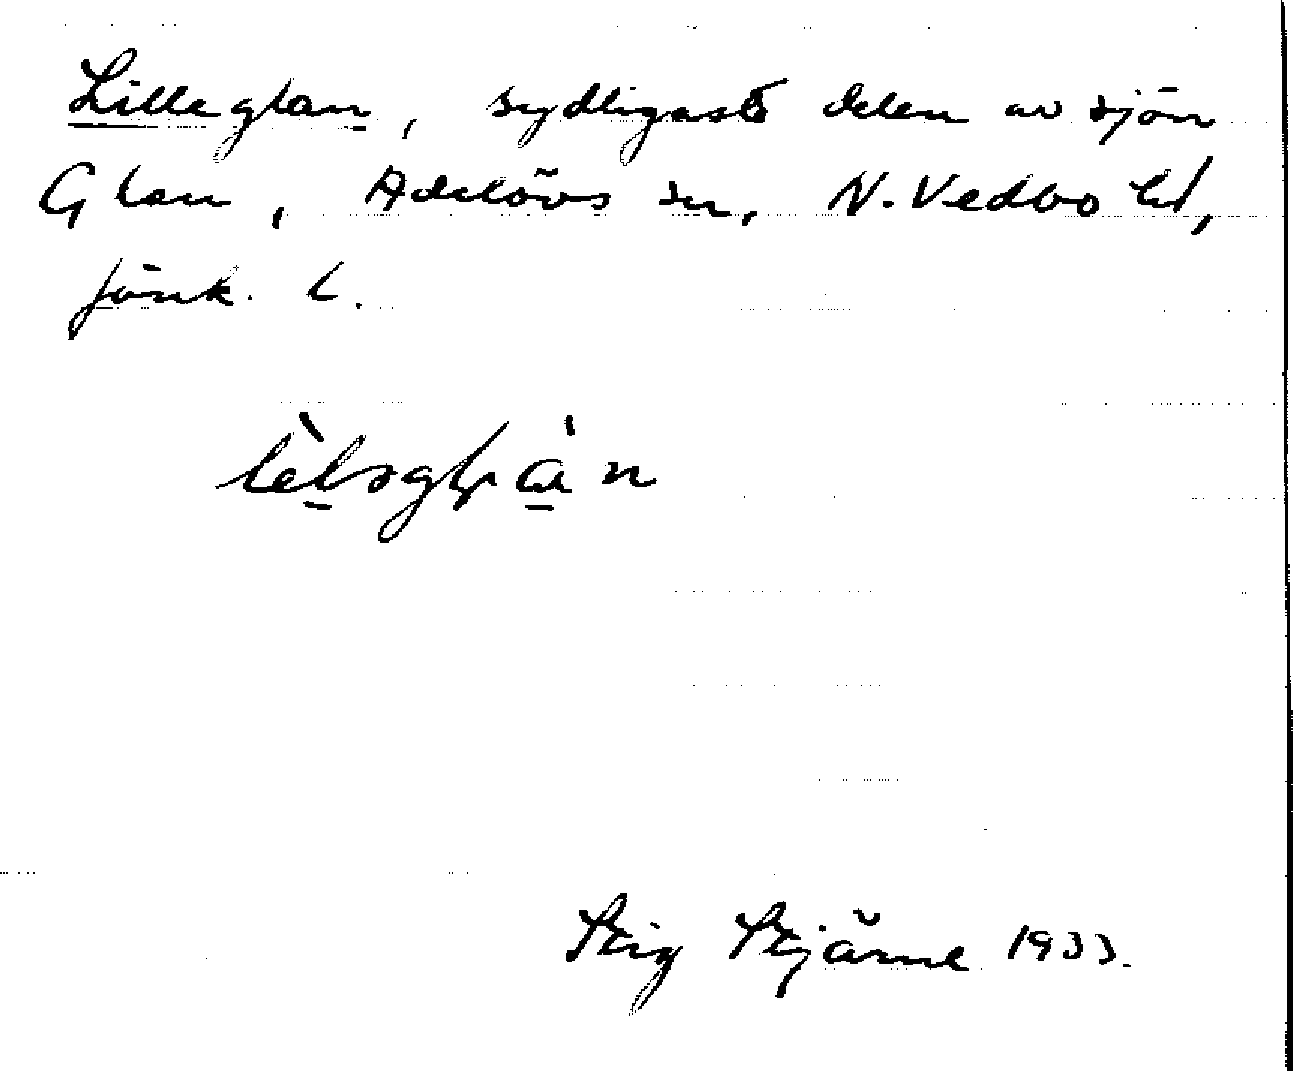 Lilleglan, sydligaste delen av sjön
Glan, Adelövs sn, N. Vedbo hd,
Jönk. l.
Stig Stjärne 1933.